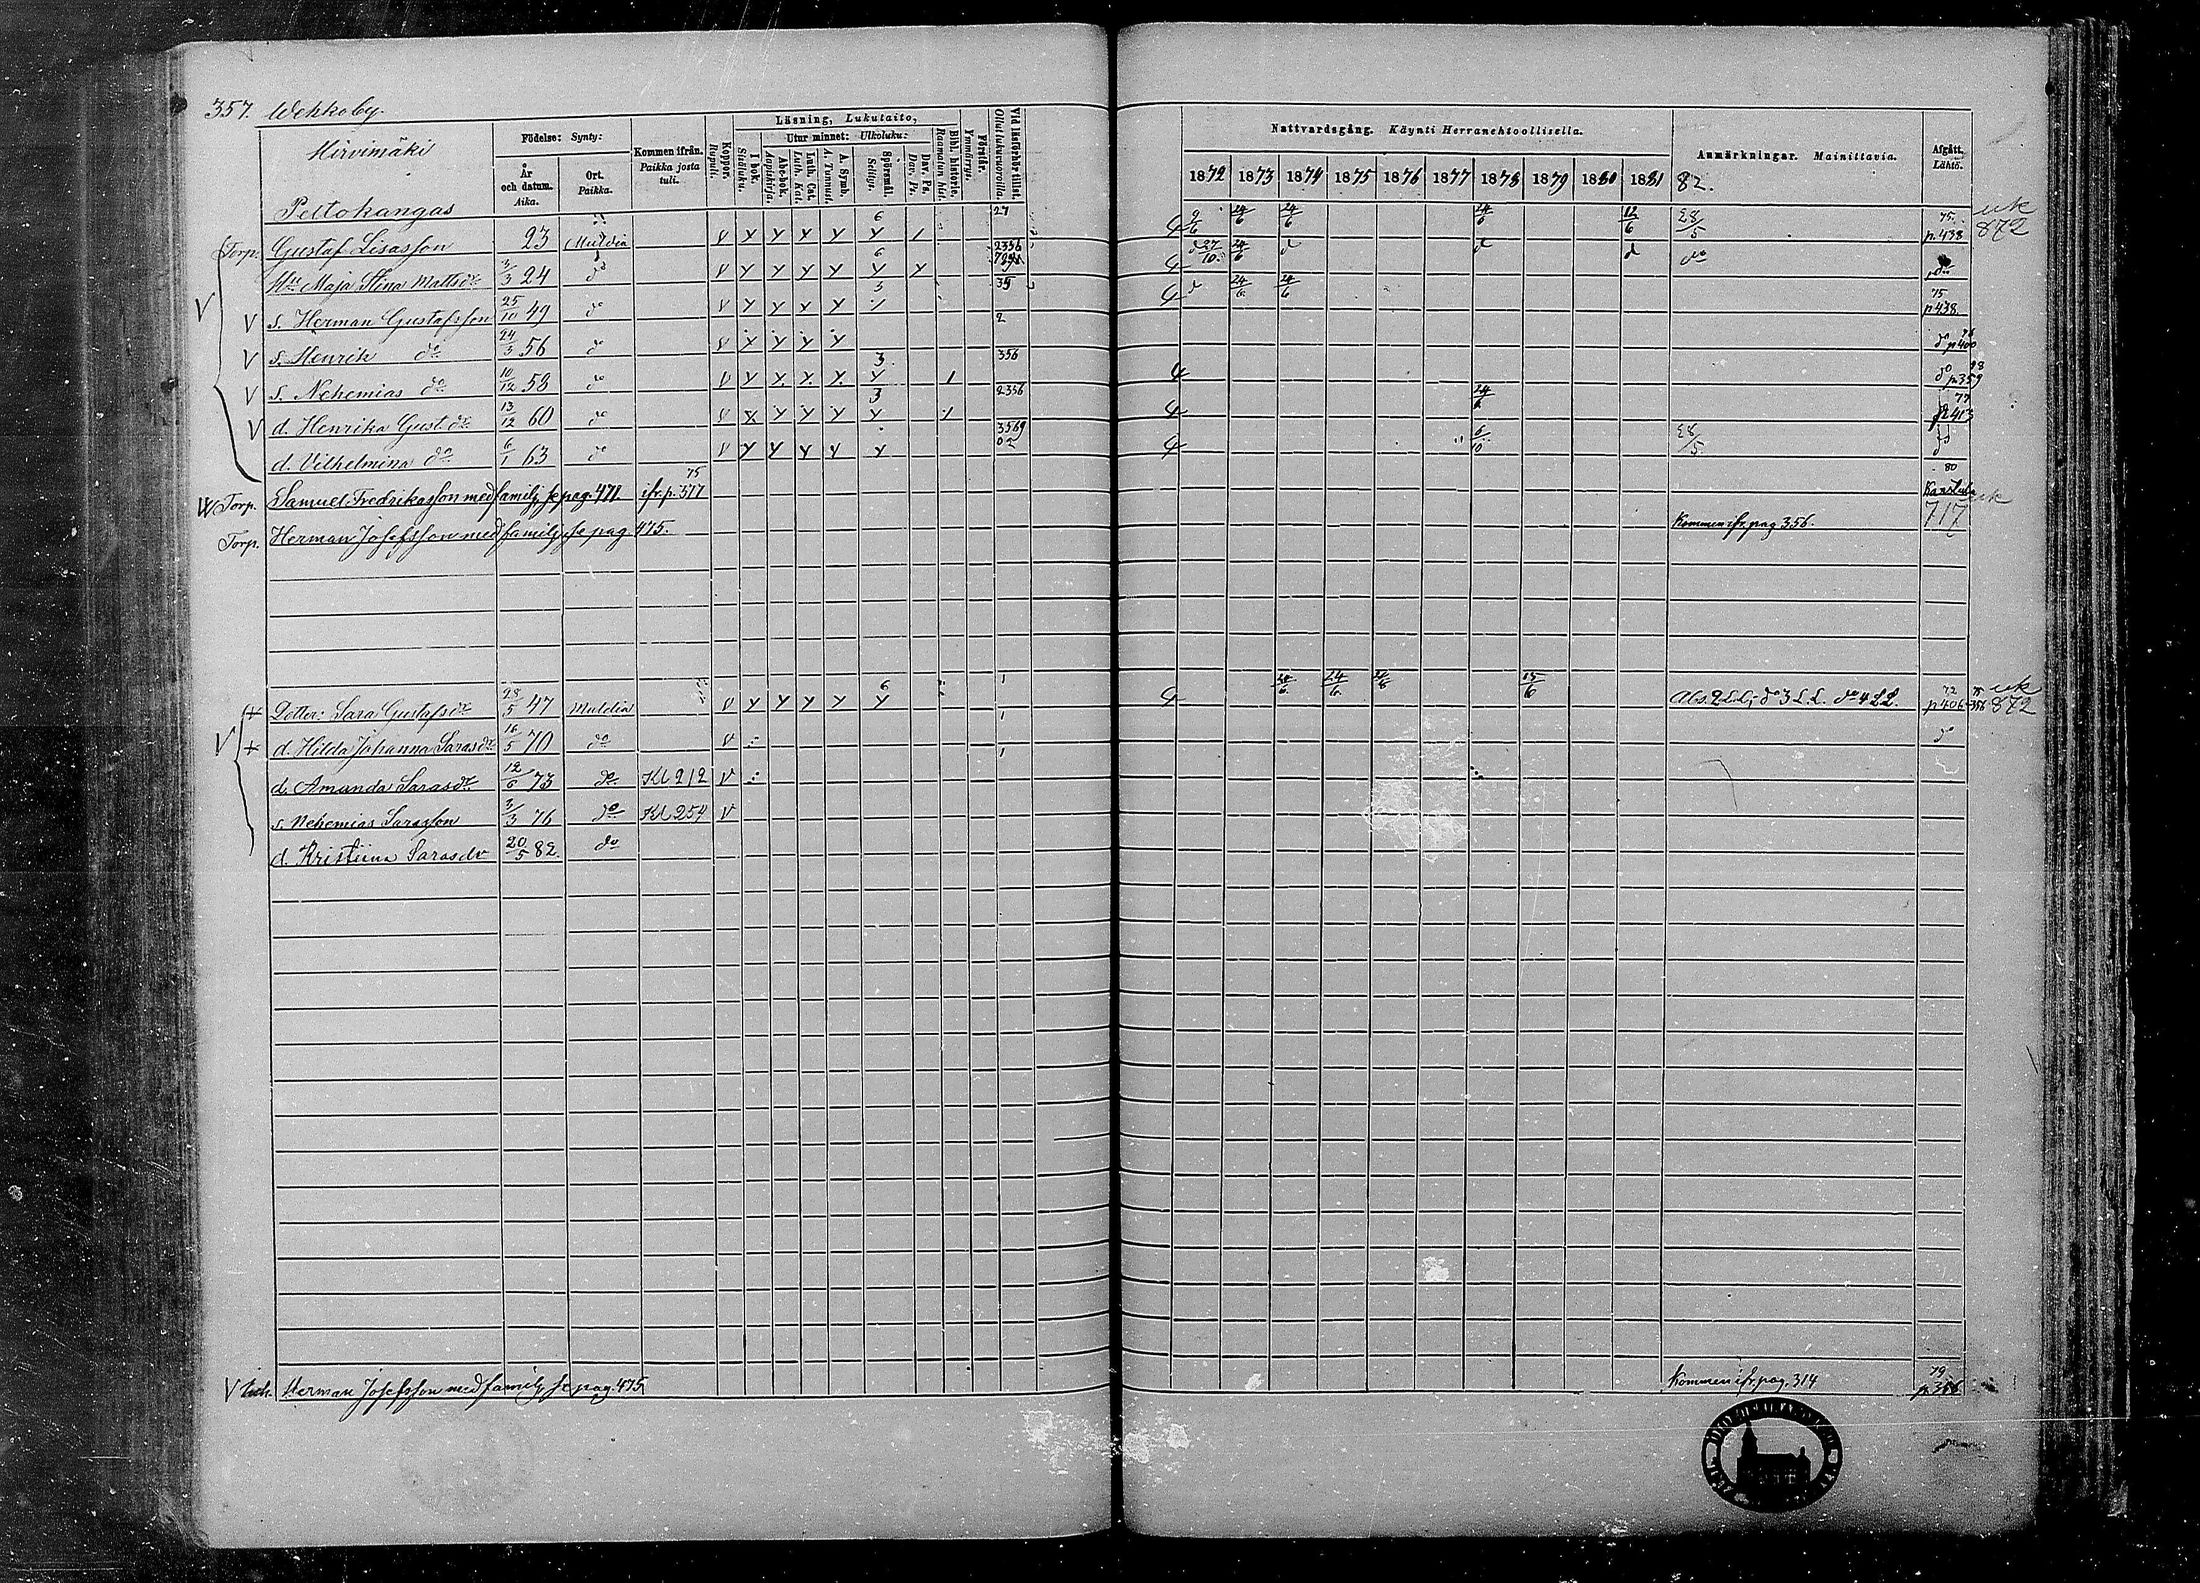 357. Wehkoby.
Hirvimäki
Födelse: Synty:
År och datum. Aika.
Ort. Paikka.
Kommen ifrån. Paikka josta tuli.
Koppor. Rupuli.
Läsning, Lukutaito,
I bok. Sisäluku.
Utur minnet: Ulkoluku:
Abc-bok. Aapiskirja.
Luth. Cat. Luth. Kat.
A. Symb. A. Tunnust.
Spörsmål. Selitys.
Dav. Ps. Dav. Ps.
Bibl. historie. Raamatun hist.
Förstår. Ymmärrys.
Vid läsförhör tillst. Ollut lukuvuoroilla.
Nattvardsgång. Käynti Herranehtoollisella.
1872 1873 1874 1875 1876 1877 1878 1879 1880 1881
Anmärkningar. Mainittavia.
82.
Afgått. Lähtö.
Peltokangas
Torp. Gustaf Lisasson 23 Muldia 6 27 9/6 24/6 24/6 24/6 12/6 28/5 75. p. 438 uk 872
Hu Maja Stina Mattsdr 3/3 24 do 6 2356 27/10 24/6 d d d do do
V s. Herman Gustafsson 25/10 49 do 3 35 d 24/6 24/6 75 p 438
V s. Henrik do 24/3 56 do 2 do 76 p 400
V s. Nehemias do 10/12 58 do 3 356 do 78 p 359
V d. Henrika Gust.dr 13/12 60 do 3 2356 24/6 77 p 413
d. Vilhelmina do 6/1 63 do 3569 02 6/10 28/5 do
Torp. Samuel Fredriksson med familj se pag. 471. ifr. p. 317 75 80 Karstula
Torp. Herman Josefsson med familj se pag. 475. Kommen ifr. pag 356. uk 717
+ Dotter: Sara Gustafsdr 28/5 47 Muldia 6 1 24/6 24/6 15/6 Abs. 2 L.L; do 3 L.L. do 4 L.L. 72 p 406 75 356 uk 872
V + d. Hilda Johanna Sarasdr 16/5 70 do V 1 do
d. Amanda Sarasdr 12/6 73 do Kl 212 V 1
s. Nehemias Sarasson 3/3 76 do Kl 254 V
d. Kristiina Sarasdr 20/5 82 do
V Inh. Herman Josefsson med familj se pag. 475 Kommen ifr. pag. 314 79 p. 356